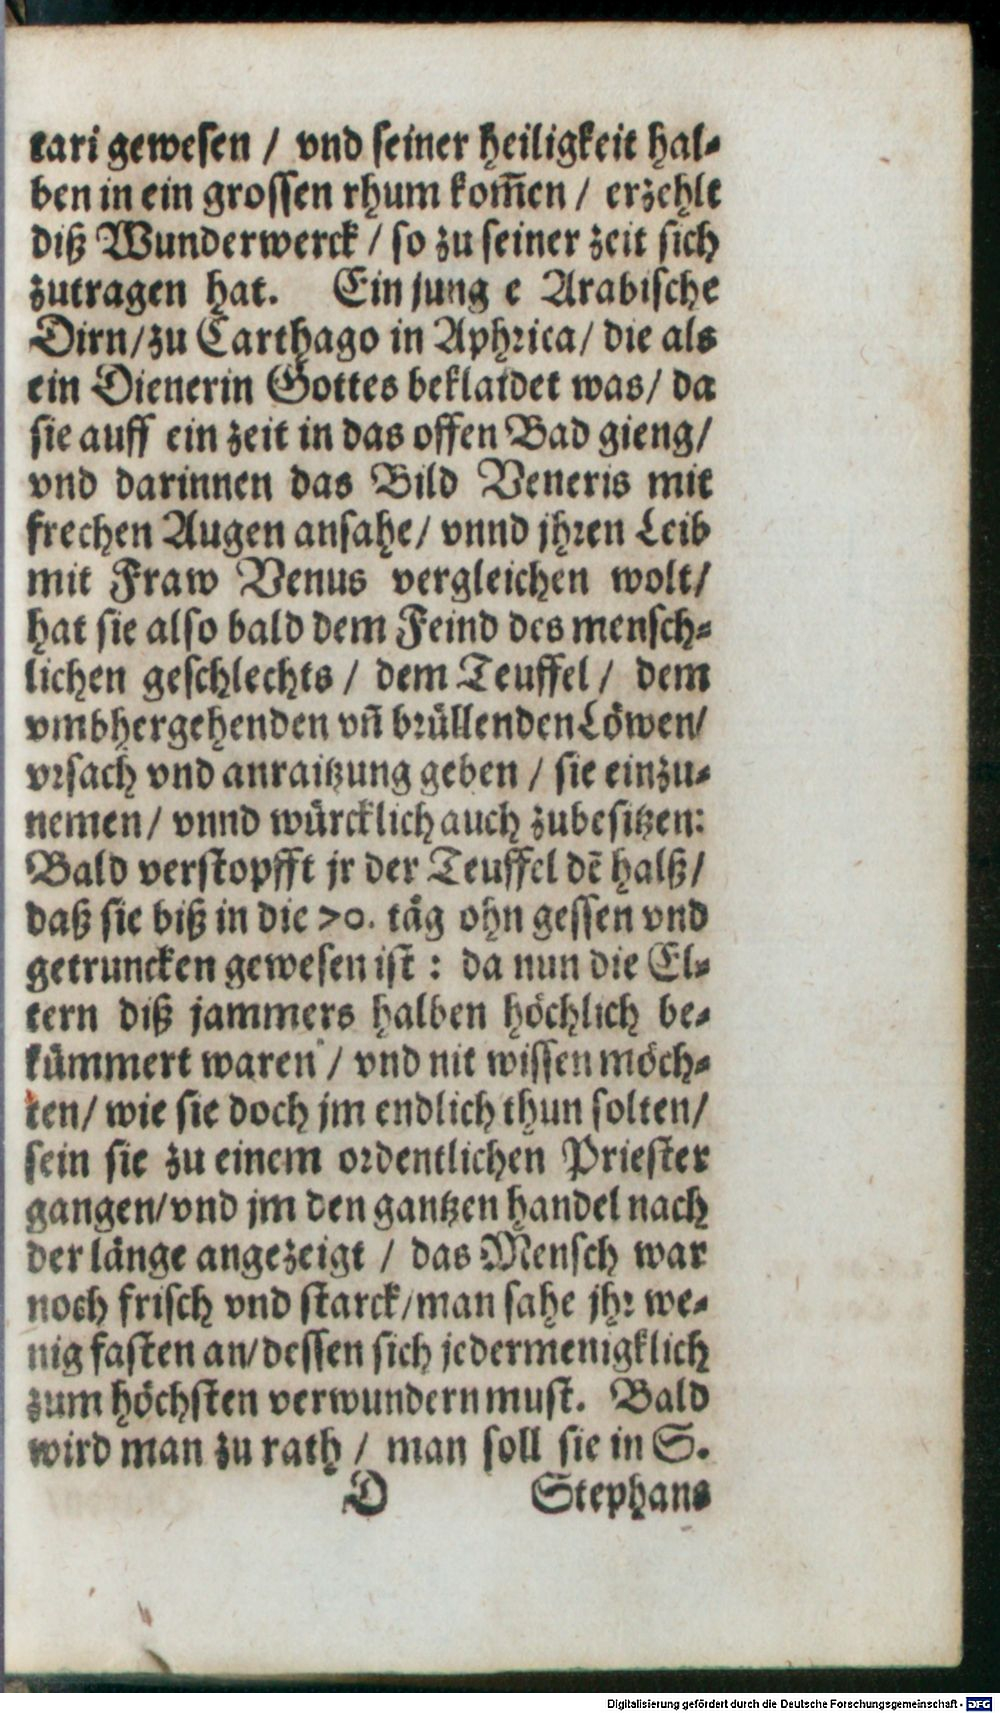 tari gewesen / vnd seiner heiligkeit hal-
ben in ein grossen rhum kom̃en / erzehlt
diß Wunderwerck / so zu seiner zeit sich
zutragen hat. Ein jung e Arabische
Dirn/ zu Carthago in Aphrica/ die als
ein Dienerin Gottes beklaidet was/ da
sie auff ein zeit in das offen Bad gieng/
vnd darinnen das Bild Veneris mit
frechen Augen ansahe/ vnnd jhren Leib
mit Fraw Venus vergleichen wolt/
hat sie also bald dem Feind des mensch-
lichen geschlechts / dem Teuffel / dem
vmbhergehenden vñ brüllenden Löwen/
vrsach vnd anraitzung geben / sie einzu-
nemen/ vnnd würcklich auch zubesitzen:
Bald verstopfft jr der Teuffel dē halß/
daß sie biß in die 70. täg ohn gessen vnd
getruncken gewesen ist : da nun die El-
tern diß jammers halben höchlich be-
kümmert waren / vnd nit wissen möch-
ten/ wie sie doch jm endlich thun solten/
sein sie zu einem ordentlichen Priester
gangen/ vnd jm den gantzen handel nach
der länge angezeigt / das Mensch war
noch frisch vnd starck/ man sahe jhr we-
nig fasten an/ dessen sich jedermenigklich
zum höchsten verwundern must. Bald
wird man zu rath / man soll sie in S.
D Stephans
Digitalisierung gefördert durch die Deutsche Forschungsgemeinschaft - DFG